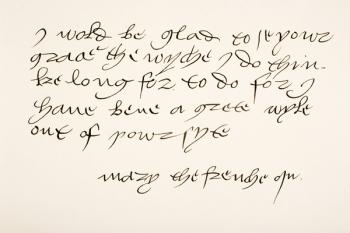 I wold be glad to se yowr
grace the wyche I do thin
ke long for to do for I
have bene a grete wyle
out of yowr syte
mary the frenche qu.